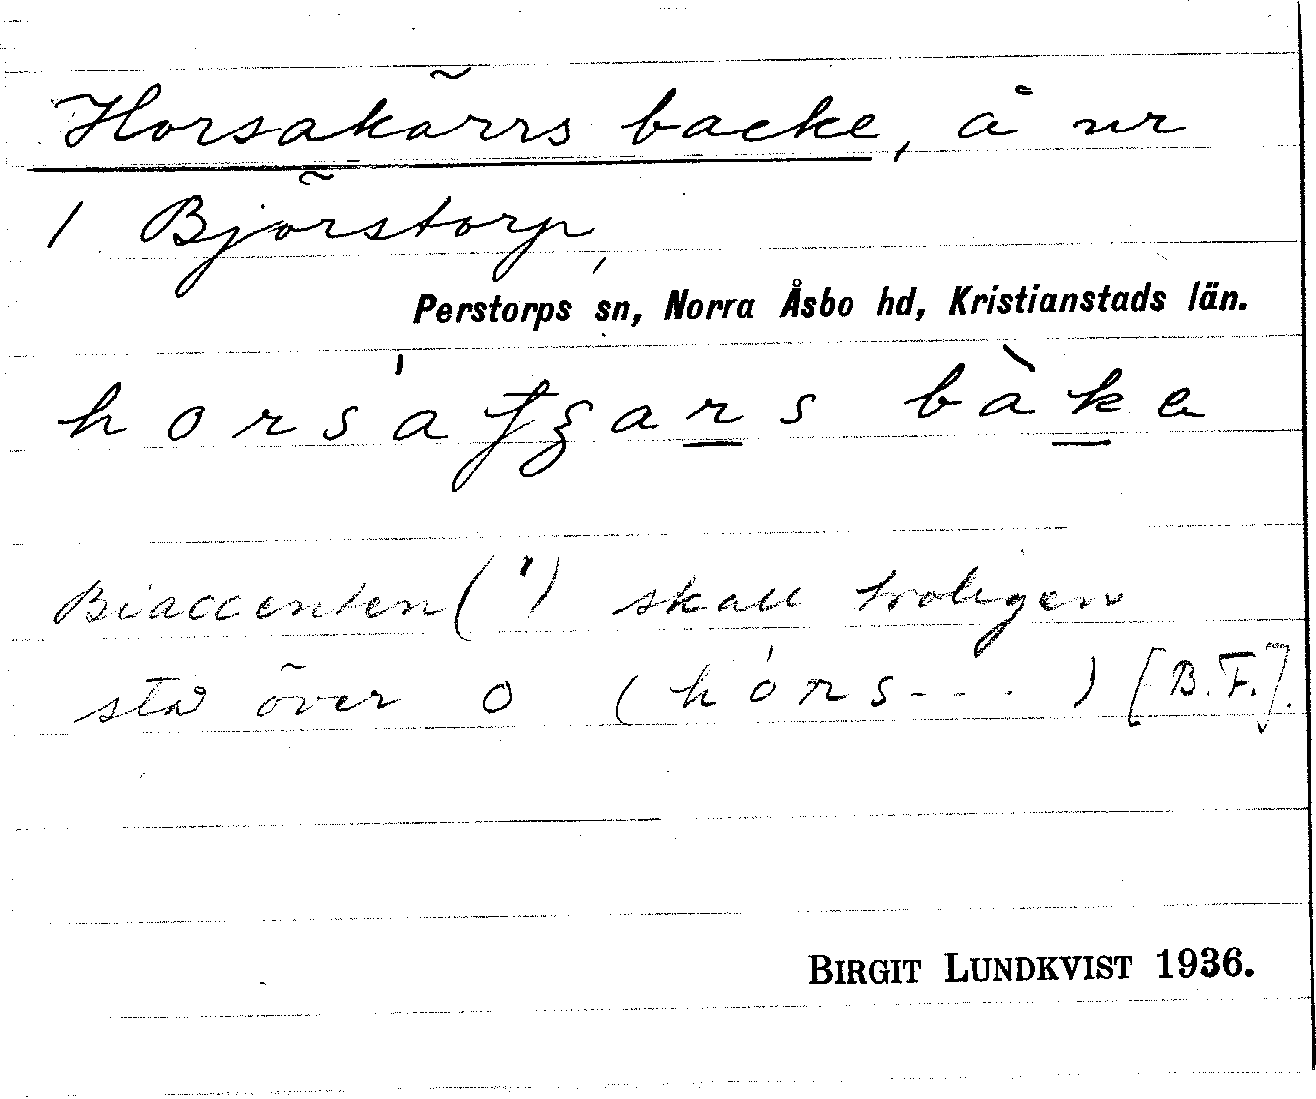 Horsakärrs backe, å nr
1 Björstorp,
Perstorps sn, Norra Åsbo hd, Kristianstads län.
horsa bàke
Biaccenten (') skall troligen
stå över o (hórs---) [B.F.].
BIRGIT LUNDKVIST 1936.